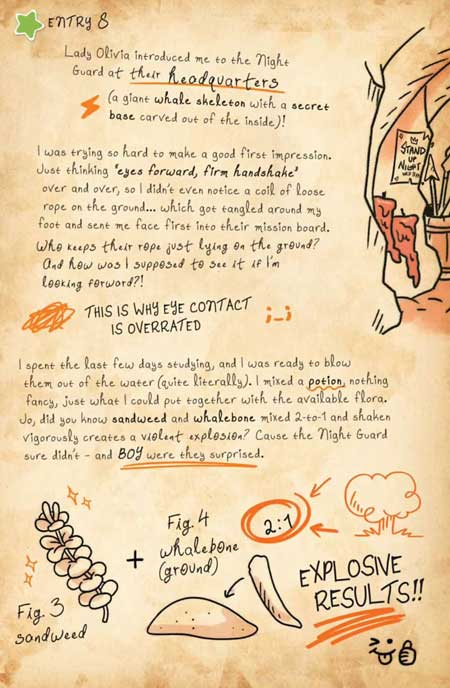 ENTRY 8
Lady Olivia introduced me to the Night
Guard at their headquarters
(a giant whale skeleton with a secret
base carved out of the inside)!
STAND
UP
NIGHT
I was trying so hard to make a good first impression.
Just thinking "eyes forward, firm handshake"
over and over, so I didn't even notice a coil of loose
rope on the ground... which got tangled around my
foot and sent me face first into their mission board.
Who keeps their rope just lying on the ground?
And how was I supposed to see it if I'm
looking forward?!
THIS IS WHY EYE CONTACT
IS OVERRATED
;_;
I spent the last few days studying, and I was ready to blow
them out of the water (quite literally). I mixed a potion, nothing
fancy, just what I could put together with the available flora.
Jo, did you know sandweed and whalebone mixed 2-to-1 and shaken
vigorously creates a violent explosion? Cause the Night Guard
sure didn't - and BOY were they surprised.
Fig. 3
sandweed
+
Fig. 4
whalebone
(ground)
2:1
EXPLOSIVE
RESULTS!!